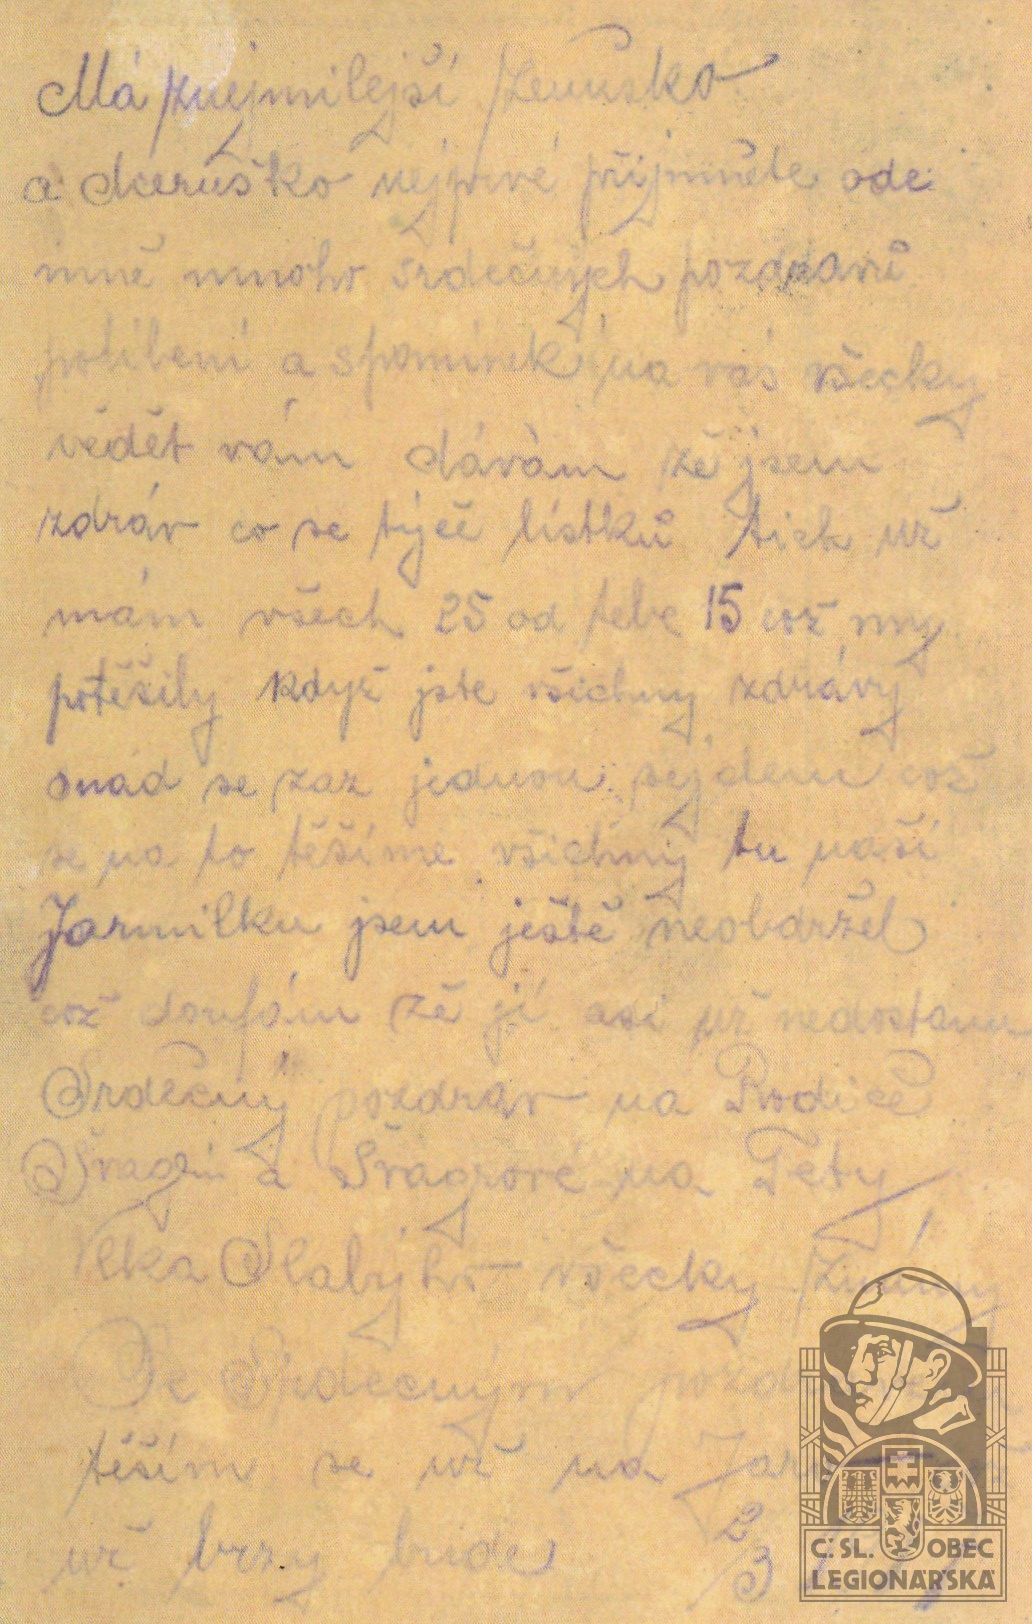 Má znejmilejší ženuško
a dceruško nejprvé přijmněte ode
mně mnoho srdečných pozdravů
políbení a spomínek na vás všecky
vědět vám dávám žě jsem
zdráv co se týčě lístků tich už
mám všech 25 od tebe 15 což my
potěšily když jste všichny zdrávy
snad se zaz jednou sejdem což
se na to těšíme všichny tu naši
Jarmilku jsem ještě neobdržel
což doufám žě jí asi už nedostanu
Srdečný pozdrav na Rodiče
Švagri a Švagrové na Tety
Slabýho všecky známy
Se Srdecným
těším se už na
už brzy bude 2/3
Č. SL. OBEC
LEGIONÁŘSKÁ